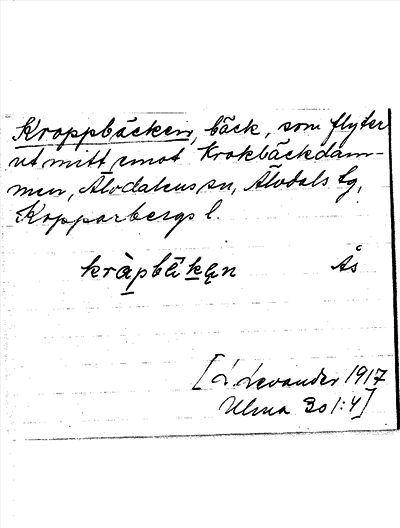 Kroppbäcken, bäck, som flyter
ut mitt emot Krokbäckdam-
men, Älvdalens sn, Älvdals tg,
Kopparbergs l.
kràpbẹ̄kẹn Ås
[L Levander 1917
Ulma 301:4]